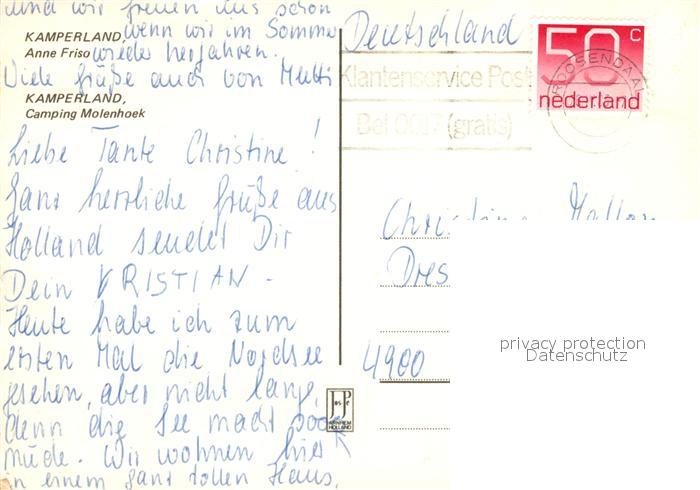 Liebe Tante Christine!
Ganz herzliche Grüße aus
Holland sendet Dir
Dein KRISTIAN -
Heute habe ich zum
ersten Mal die Nordsee
gesehen, aber nicht lange,
denn die See macht sooo
müde. Wir wohnen hier
in einem ganz tollen Haus,
und wir freuen uns schon
wenn wir im Sommer
wieder herfahren.
Viele Grüße auch von Mutti
KAMPERLAND,
Anne Friso
KAMPERLAND,
Camping Molenhoek
JosPé
ARNHEM
HOLLAND
Deutschland
Klantenservice Post
Bel 0017 (gratis)
ROOSENDAAL
50 c
nederland
Dres
4900
privacy protection
Datenschutz